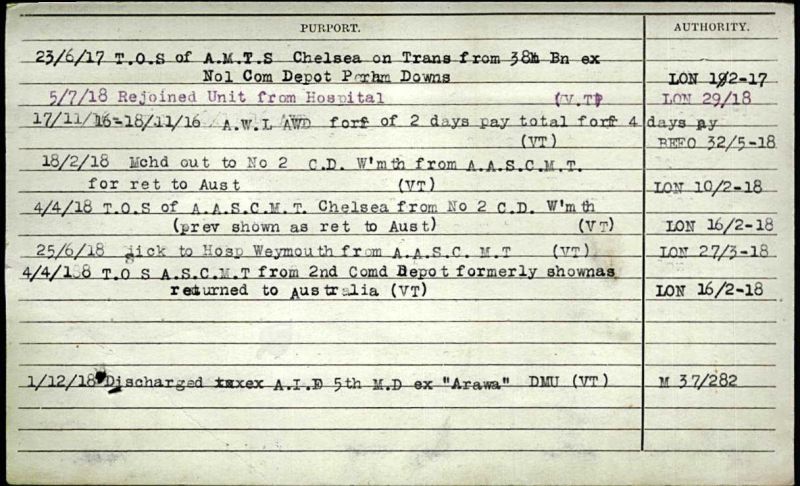 PURPORT. AUTHORITY.
23/6/17 T.O.S of A.M.T.S Chelsea on Trans from 38th Bn ex
No1 Com Depot Perhm Downs LON 192-17
5/7/18 Rejoined Unit from Hospital (V.T) LON 29/18
17/11/16-18/11/16 A.W.L AWD forf of 2 days pay total forf 4 days py
(VT) BEFO 32/5-18
18/2/18 Mchd out to No 2 C.D. W'mth from A.A.S.C.M.T.
for ret to Aust (VT) LON 10/2-18
4/4/18 T.O.S of A.A.S.C.M.T. Chelsea from No 2 C.D. W'mth
(prev shown as ret to Aust) (VT) LON 16/2-18
25/6/18 sick to Hosp Weymouth from A.A.S.C. M.T (VT) LON 27/3-18
4/4/188 T.O S A.S.C.M.T from 2nd Comd Depot formerly shownas
returned to Australia (VT) LON 16/2-18
1/12/18 Discharged ex A.I.F 5th M.D ex "Arawa" DMU (VT) M 37/282